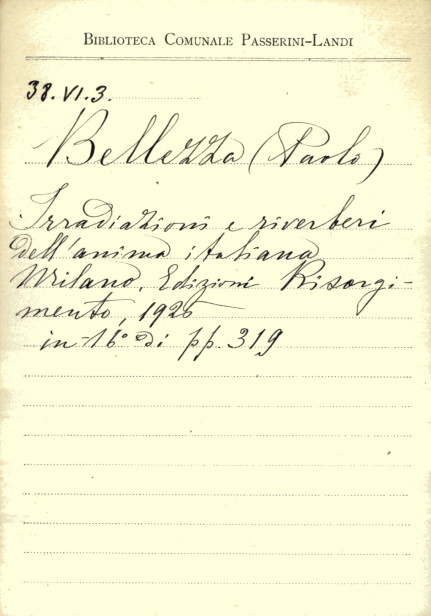 BIBLIOTECA COMUNALE PASSERINI-LANDI
38.VI.3.
Bellezza (Paolo)
Irradiazioni e riverberi
dell'anima italiana
Milano, Edizioni Risorgi-
mento, 1925
in-16° di pp. 319